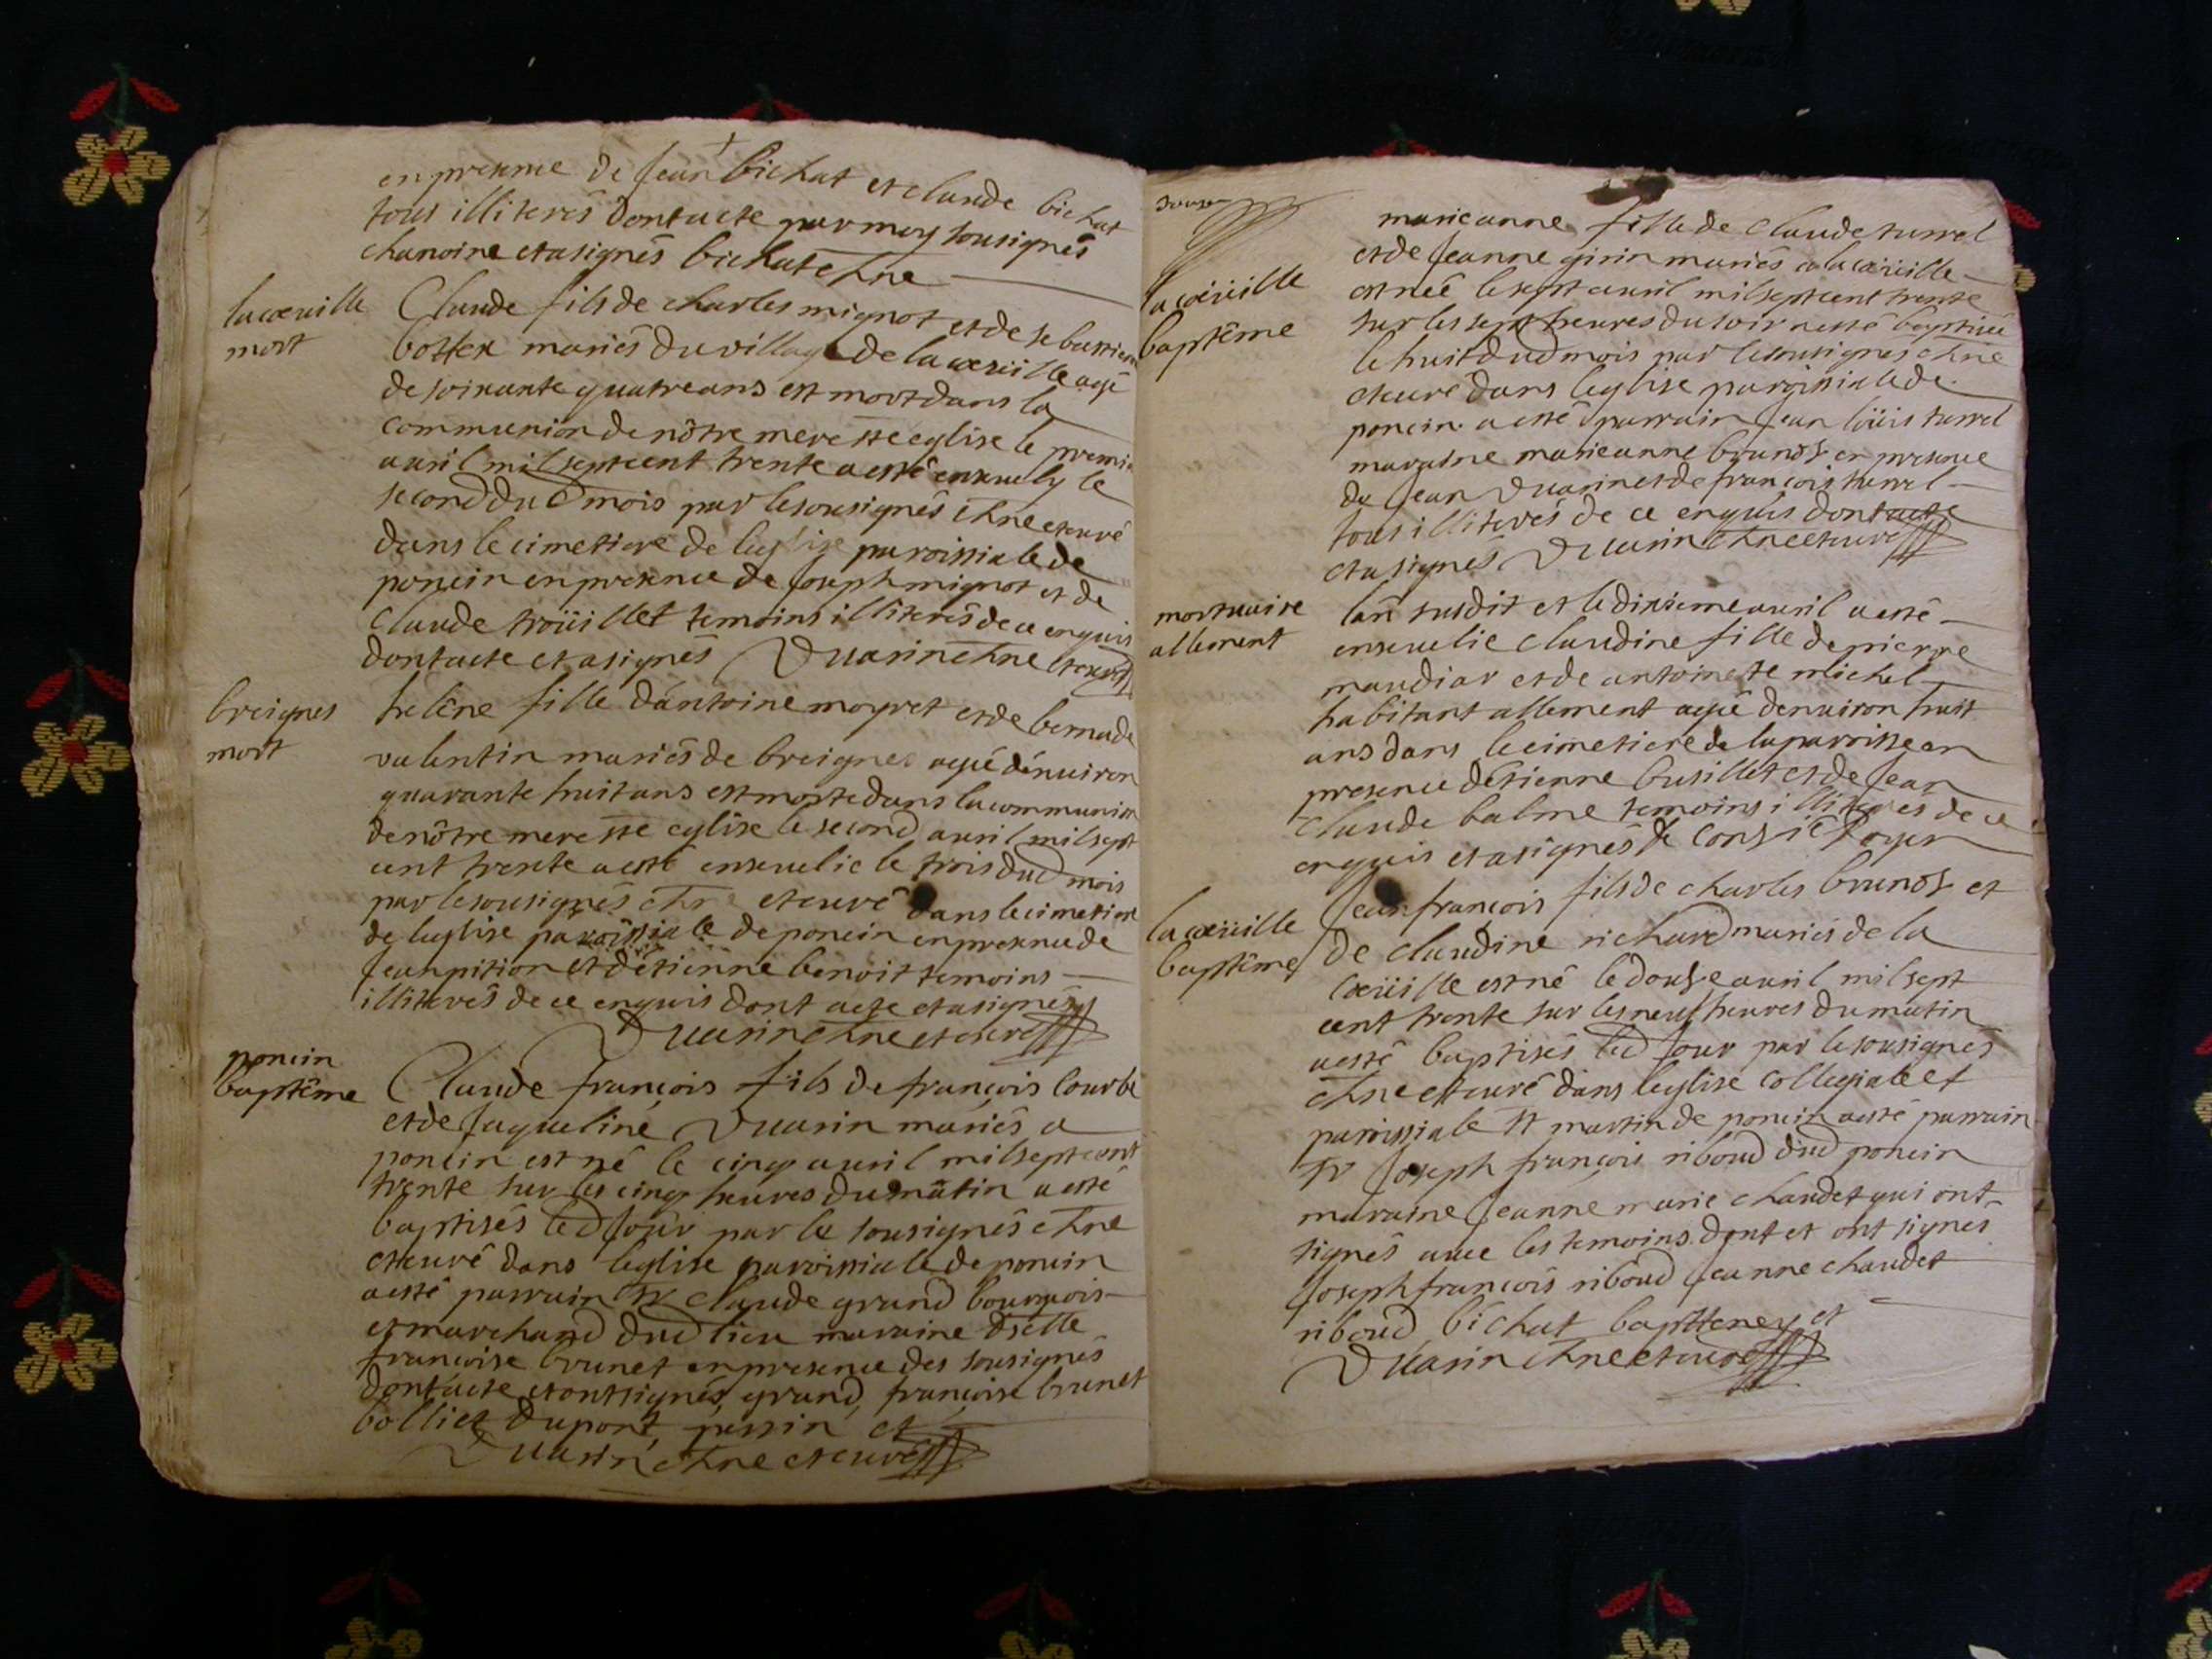 en presence de Jean bichat et claude bichat
tous illiterés dont acte par moy sousignés
chanoine et a signés bichat chne
la coeuille
mort
Claude fils de charles mignot et de sebastiene
bottex mariés du village de la coeuille agé
de soixante quatre ans est mort dans la
communion de nôtre mere ste eglise le premie
avril mil sept cent trente a esté ensevely le
second dud mois par le sousignés chne et curé
dans le cimetiere de leglise paroissiale de
poncin en presence de Joseph mignot et de
Claude troüillet temoins illiterés de ce enquis
dont acte et a signés Duarin chne et curé
breignes
mort
helêne fille dantoine moyret et de bernade
valentin mariés de breignes agée dénuiron
quarante huit ans est morte dans la communion
de nôtre mere ste eglise le second avril mil sept
cent trente a esté ensevelie le trois dud mois
par le sousignés chne et curé dans le cimetiere
de leglise paroissiale de poncin en presence de
Jean pition et détienne benoit temoins
illiterés de ce enquis dont acte et a signés
Duarin chne et curé
poncin
baptême
Claude françois fils de françois Courbe
et de Jaqueline Duarin mariés a
poncin est né le cinq avril mil sept cent
trente sur les cinq heures du matin a esté
baptisés led Jour par le sousignés chne
et curé dans leglise paroissiale de poncin
a esté parrain sr claude grand bourgois
et marchand dud lieu maraine dselle
françoise brunet en presence des sousignés
dont acte et ont signés, grand, françoise brunet
bolliet dupont, perrin et
Duarin chne et curé
la coeüille
baptême
marie anne fille de Claude turrel
et de Jeanne girin mariés a la coeüille
est neé le sept avril mil sept cent trente
sur les sept heures du soir a esté baptisée
le huit dud mois par le sousignés chne
et curé dans leglise paroissiale de
poncin a esté parrain Jean loüis turrel
maraine marie anne brunot en presence
de Jean Duarin et de françois turrel
tous illiterés de ce enquis dont acte
et a signés Duarin chne et curé
mortuaire
allement
lan susdit et le dixieme avril a esté
ensevelie claudine fille de pierre
maudiar et de antoinette michel
habitant allement agée denuiron huit
ans dans le cimetiere de la paroisse en
presence détienne busillet et de Jean
Claude balme temoins illiterés de ce
enquis et a signés
la coeüille
baptême
Jean françois fils de charles brunot et
de claudine richard mariés de la
coeüille est né le douse avril mil sept
cent trente sur les neuf heures du matin
a esté baptisés led Jour par le sousignés
chne et curé dans leglise Collegiale et
paroissiale st martin de poncin a esté parrain
sr Joseph françois riboud dud poncin
maraine Jeanne marie chaudet qui ont
signés avec les temoins dont et ont signés
Joseph françois riboud Jeanne chaudet
riboud bichat et
Duarin chne et curé